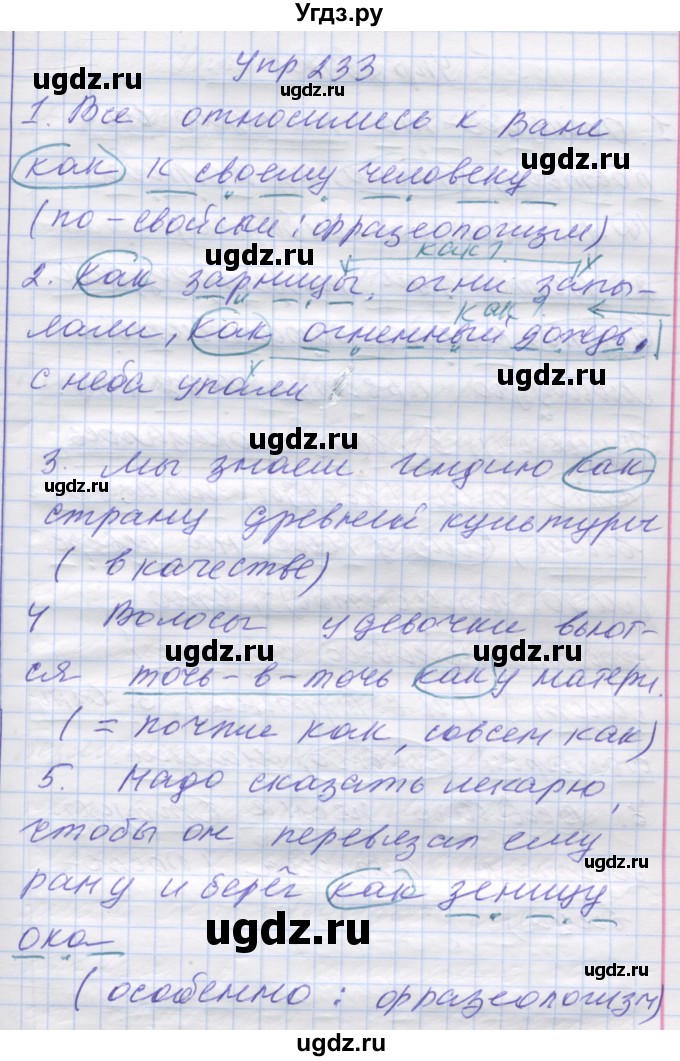 Угдз.ру
Упр 233
ugdz.ru
1. Все относились к Ване
ugdz.ru
как к своему человеку
(по-свойски: фразеологизм)
ugdz.ru
как?
2. Как зарницы, огни запы-
как?
ugdz.ru
лали, как огненный дождь,
ugdz.ru
с неба упали
ugdz.ru
3. Мы знаем Индию как
ugdz.ru
страну древней культуры
ugdz.ru
(в качестве)
4 Волосы у девочки вьют-
ugdz.ru
ся точь-в-точь как у матери.
ugdz.ru
(= почти как, совсем как)
ugdz.ru
5. Надо сказать лекарю,
чтобы он перевязал ему
ugdz.ru
рану и берёг как зеницу
ugdz.ru
ока
ugdz.ru
(особенно: фразеологизм)
ugdz.ru